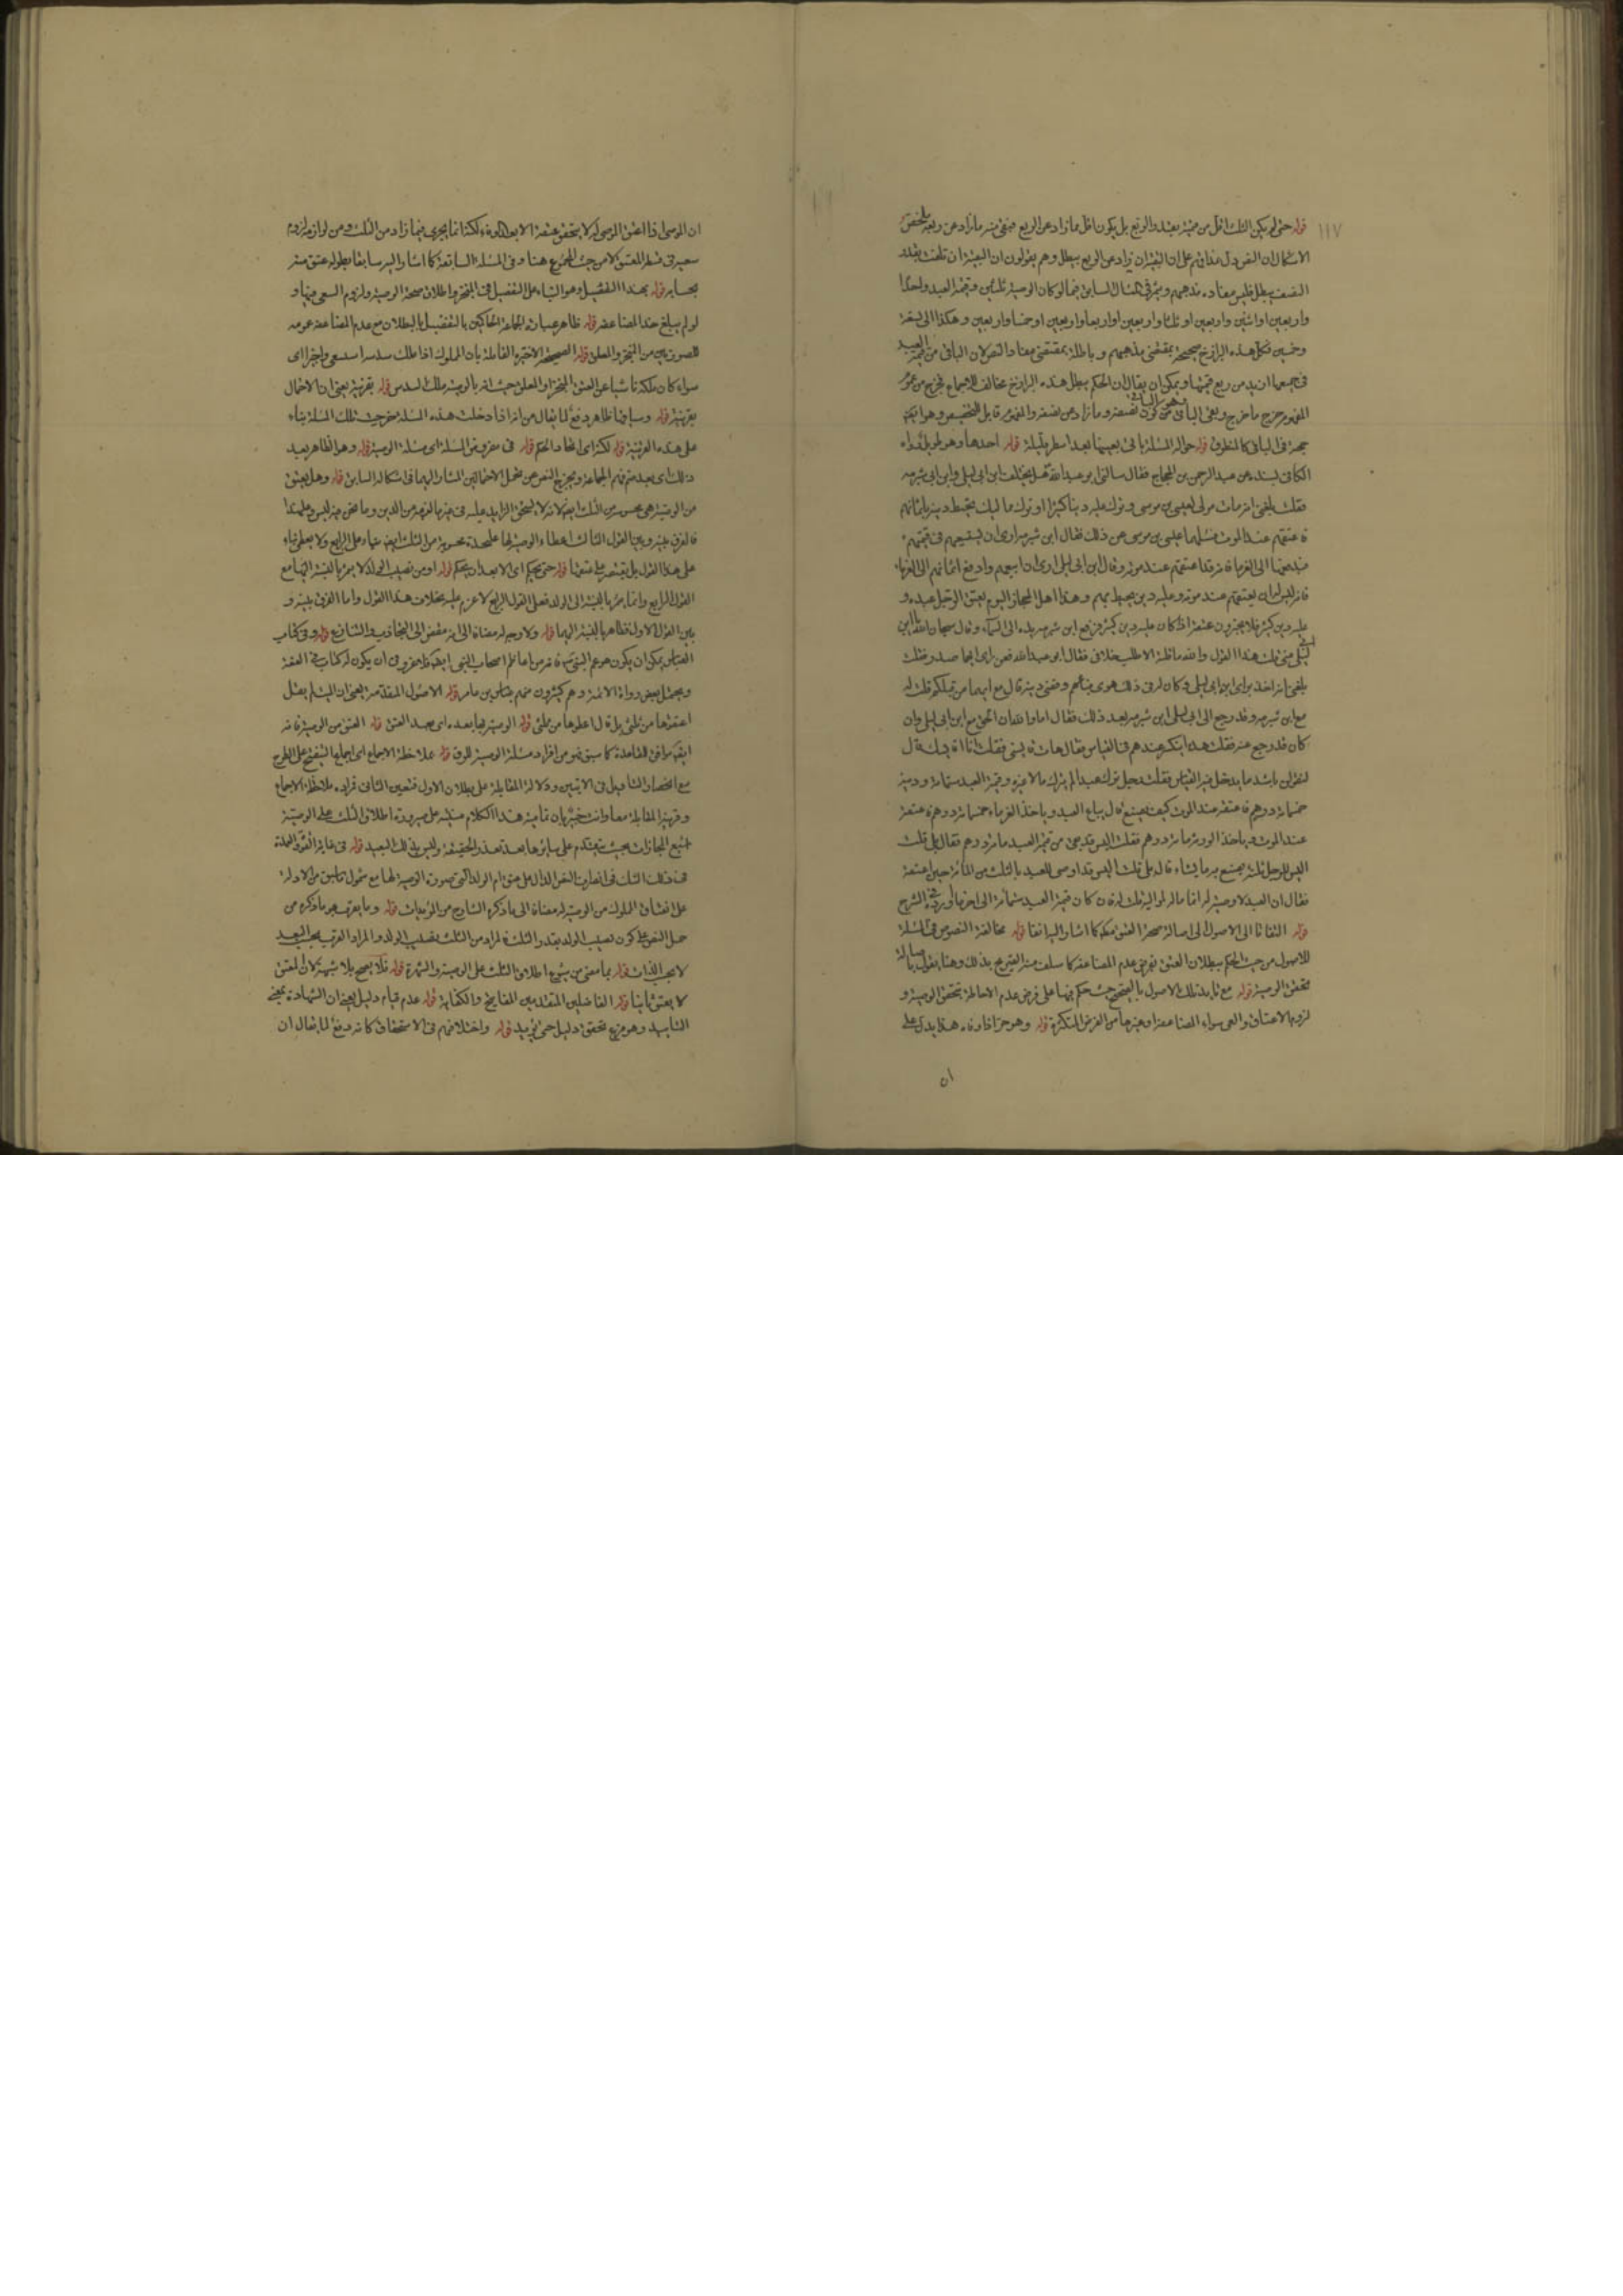 ١١٧
قوله حتى لو يكن الثلث اقل من قيمته بقدر الربع بل يكون اقل مما زاد عن الربع
الاشكال ان النص دل على ان القيمة ان زاد عن الربع يبطل وهم يقولون ان القيمة ان بلغت
النصف يبطل فليس مفاده مذهبهم في المثال السابق فيما لو كان الوصية ثلثين وقيمة العبد واحدا
واربعين او اثنين واربعين او ثلثا واربعين او اربعا واربعين او خمسا واربعين وهكذا الى تسعة
وخمسين فكل هذه البرازخ صحيحة بمقتضى مذهبهم وباطلة بمقتضى مفاد النص لان الباقي من قيمة العبد
في جميعها ازيد من ربع قيمتها ويمكن ان يقال ان الحكم ببطل هذه البرازخ مخالف للاجماع فخرج من عموم
المفهوم خرج ما خرج وبقى الباقي
حجة في الباقي كالمنطوق قوله حوالة المسئلة ياتى بعينها بعد اسطر قليلة قوله احدها وهو طويل رواه
الكافي بسنده عن عبد الرحمن بن الحجاج فقال سالني ابو عبد الله هل يختلف ابن ابي ليلى وابن شبرمه
فقلت بلغنى انه مات مولى لعيسى بن موسى وترك عليه دينا كثيرا وترك مماليك يحيط دينه باثمانهم
فاعتقهم عند الموت فسئلهما عيسى بن موسى عن ذلك فقال ابن شبرمه ارى ان يستسعيهم في قيمتهم
فيدفعها الى الغرماء فانه قد اعتقهم عند موته وقال ابن ابي ليلى ارى ان ابيعهم وادفع اثمانهم الى الغرماء
فانه ليس له ان يعتقهم عند موته وعليه دين يحيط بهم وهذا اهل الحجاز اليوم يعتق الرجل عبده و
عليه دين كثير فلا يجيزون عتقه اذا كان عليه دين كثير فرفع ابن شبرمه يده الى السماء وقال سبحان الله يا ابن
ابى ليلى متى قلت هذا القول والله ما قلته الا طلب خلافى فقال ابو عبد الله فعن راى ايهما صدر قلت
بلغنى انه اخذ براى ابن ابي ليلى وكان له في ذلك هوى فباعهم وقضى دينه قال مع ايهما من قبلكم قلت له
مع ابن شبرمه وقد رجع ابن ابي ليلى الى راى ابن شبرمه بعد ذلك فقال اما والله ان الحق مع ابن ابي ليلى وان
كان قد رجع عنه فقلت هذا ينكسر عندهم في القياس فقال هات قايسنى فقلت انا اقايسك قال
لتقولن باشد ما يدخل فيه القياس فقلت رجل ترك عبدا لم يترك مالا غيره وقيمة العبد ستمائة ودينه
خمسمائة درهم فاعتقه عند الموت كيف يصنع قال يباع العبد وياخذ الغرماء خمسمائة درهم
عند الموت وياخذ الورثة مائة درهم فقلت اليس قد بقى من قيمة العبد مائة درهم فقال بلى قلت
اليس للرجل ثلثه يصنع به ما يشاء قال بلى قلت اليس قد اوصى للعبد بالثلث من المائة حين اعتقه
فقال ان العبد لا وصية له انما ماله لمواليه قلت له فان كان قيمة العبد ستمائة الى اخر ما في الشرح
قوله التفاتا الى الاصول الى اصالة صحة العتق قوله مخالفة النصوص في المسئلة
للاصول من حيث الحكم ببطلان العتق بفرض عدم المضاعفة كما سلف منه التصريح بذلك وهنا يقول باصالة
تحقق الوصية قوله مع تايد تلك الاصول بالصحيح حيث حكم فيها على فرض عدم الاحاطة بتحقق الوصية و
لزوم الاعتاق والسعى سواء المضاعفة او غيرها من الفرض المنكرة قوله وهو حر اذا وفاه هذا يدل على
ان
ان الموصى اذا اعتق الموصى له لا يتحقق عتقه الا بعد الوفاء لكنه انما يجرى فيما زاد من الثلث ومن لوازمه لزوم
بحسابه قوله بهذا التفصيل وهو البناء على التفصيل في المنجز واطلاق صحة الوصية ولزوم السعى فيها و
لو لم يبلغ حد المضاعفة قوله ظاهر عبارة الجماعة الحاكمين بالتفصيل بالبطلان مع عدم المضاعفة عمومه
للصورتين من المنجز والمعلق قوله الصحيحة الاخيرة القائلة بان المملوك اذا ملك سدسه استسعى واجيز اى
سواء كان ملكه ناشيا عن العتق المنجز او المعلق حيث انه بالوصية ملك السدس قوله بقرينة يعنى ان الاحتمال
بقرينة قوله وسياقها ظاهر دفع لما يقال من انه اذا دخلت هذه المسئلة خرجت تلك المسئلة بناء
على هذه القرينة قوله لكنه اى اتحاد الحكم قوله في معروض المسئلة اى مسئلة الوصية قوله وهو الظاهر بعيد
وذلك اى بعيد منهم فهم الجماعة ويخرج النص عن محمل الاحتمالين المشار اليهما في اشكاله السابق قوله وهل يعتق
من الوصية هى محسوب من الثلث ايضا
فالفرق بينه وبين القول الثالث اعطاء الوصية لها على حدة محسوبة من الثلث ايضا بناء على الرابع ولا يعطى بناء
على هذا القول بل يقتصر على عتقها قوله حتى يحكم اى الا بعد ان يحكم قوله او من نصيب الولد لا يعبر بالنسبة اليها مع
القول الرابع وانما يعبر بالنسبة الى الولد فعلى القول الرابع لا عزم عليه بخلاف هذا القول واما الفرق بينه و
بين القول الاول فظاهر بالنسبة اليها قوله ولا وجه له مضافا الى انه مفض الى التجاذب والتنازع قوله وفى كتاب
العباس يمكن ان يكون هو عم النبى ص فانه من اعاظم اصحاب النبى ايضا فلا غرو فى ان يكون له كتاب فى الفقه
ويحتمل بعض رواة الائمة وهم كثيرون منهم عباس بن عامر قوله الاصول المتقدمة يعنى ان الميت لم يقل
اعتقوها من ثلثى بل قال اعطوها من ثلثى قوله الوصية لها بعده اى بعد العتق قوله العتق من الوصية فانه
ايضا موافق للقاعدة كما سبق فهو من افراد مسئلة الوصية للرق قوله ملاحظة الاجماع
مع انحصار التاويل فى الاثنين ودلالة المقابلة على بطلان الاول فتعين الثانى فرايه ملاحظة الاجماع
وقرينة المقابلة معا وانت خبير بان تمامية هذا الكلام مبنية على صيرورة اطلاق الثلث على الوصية
اشيع المجازات بحيث يتقدم على سايرها بعد تعذر الحقيقة وليس بذلك البعيد قوله فى غاية القوة
على انعتاق المملوك من الوصية له مضافا الى ما ذكره الشارح من المؤيدات قوله
حمل النص على كون نصيب الولد بقدر الثلث فالمراد من الثلث نصيب الولد والمراد القرب بحسب البعد
لا بحسب الذات قوله بما مضى من شيوع اطلاق الثلث على الوصية والشهرة قوله فلا يصح بلا شبهة لان المعتق
لا يعتق ثانيا قوله الفاضلين المتقدمين المفاتيح والكفاية قوله عدم قيام دليل يعنى ان الشهادة بمعنى
التاييد وهو فرع تحقق دليل حتى يؤيد قوله واختلافهم فى الاستحقاق كانه دفع لما يقال ان